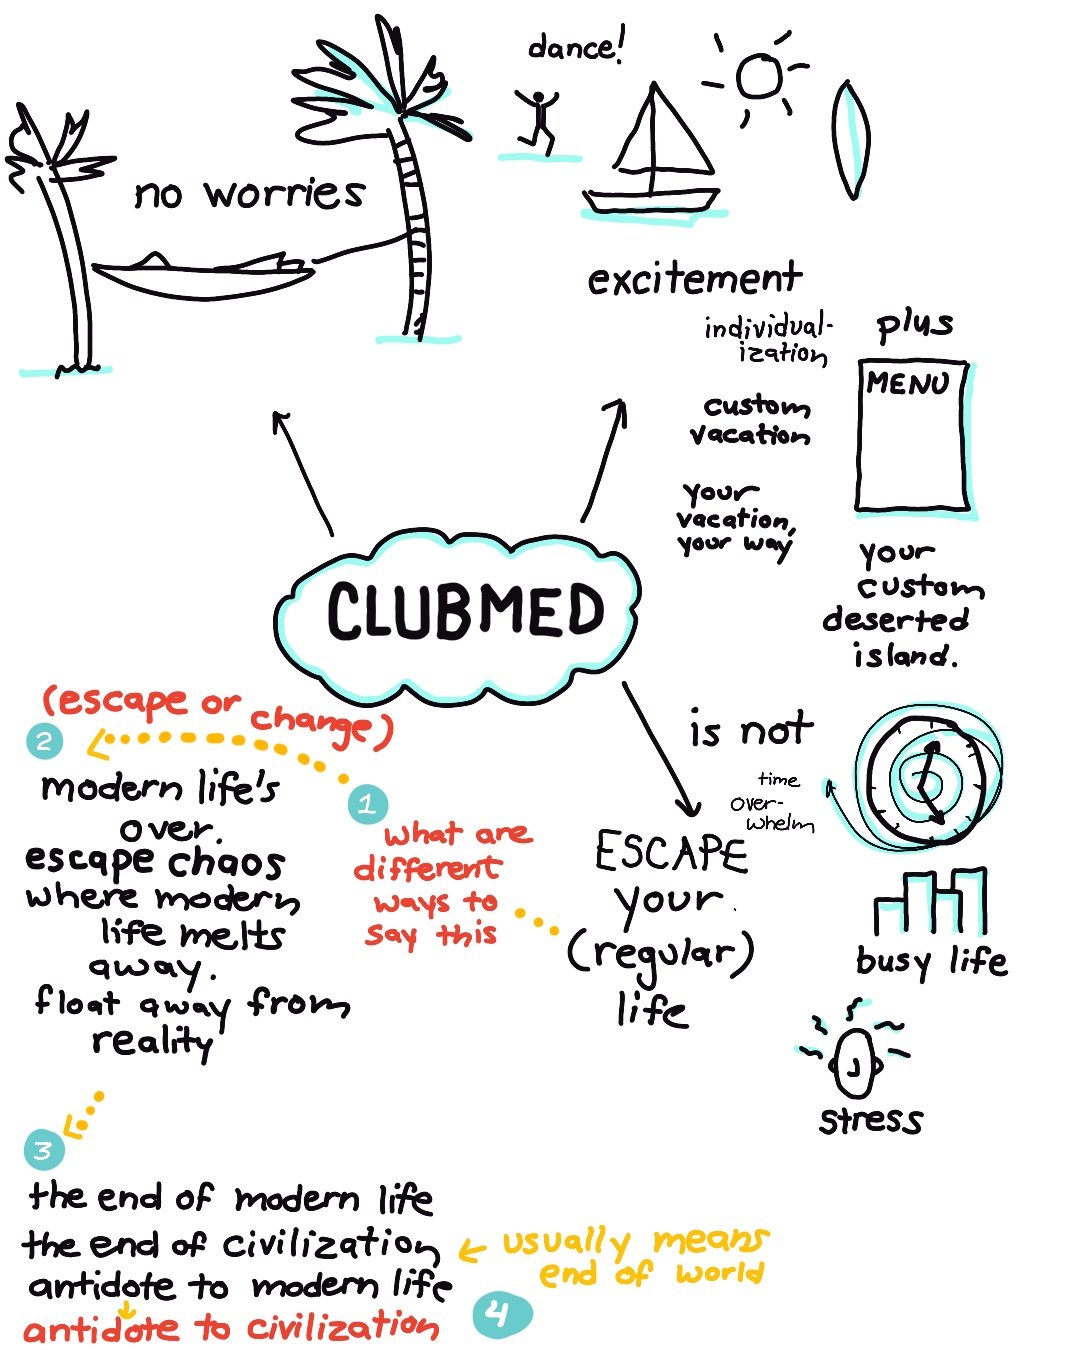 dance!
no worries
excitement
individual-
ization
plus
MENU
custom
vacation
your
vacation,
your way
your
custom
deserted
island.
CLUBMED
(escape or change)
2
modern life's
over.
escape chaos
where modern
life melts
away.
float away from
reality
1
what are
different
ways to
say this
ESCAPE
your
(regular)
life
is not
time
over-
whelm
busy life
stress
3
the end of modern life
the end of civilization
antidote to modern life
antidote to civilization
usually means
end of world
4